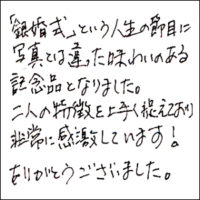 「銀婚式」という人生の節目に
写真とは違った味わいのある
記念品となりました。
二人の特徴を上手く捉えており
非常に感激しています!
ありがとうございました。